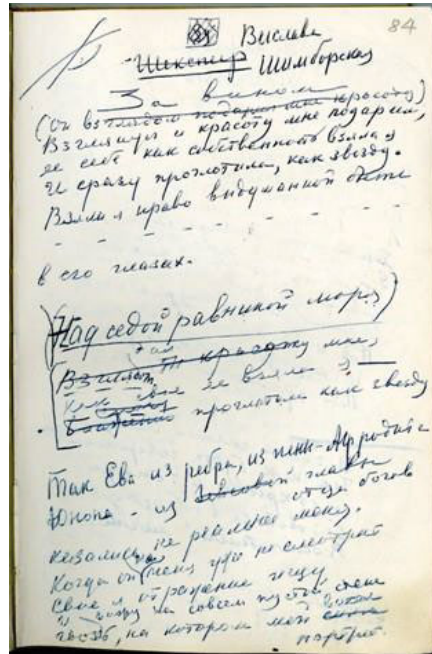 84
Вислава
Шекспир Шимборская
За вином
(Он взглядом подарил мне красоту)
Взглянул и красоту мне подарил,
ее себе как собственность взяла я
И сразу проглотила, как звезду.
Взяла я право выдуманной быть
- - - - - - - -
в его глазах.
(Над седой равниной моря)
дал
Взгляд ту красоту мне,
ее взяла я
проглотила как звезду
Так Ева из ребра, из пены - Афродита
Юнона - из главы отца богов
казались не реальнее меня.
Когда он на меня уже не смотрит
Свое я отражение ищу
я вижу на совсем пустой стене
гвоздь, на котором мой
портрет.